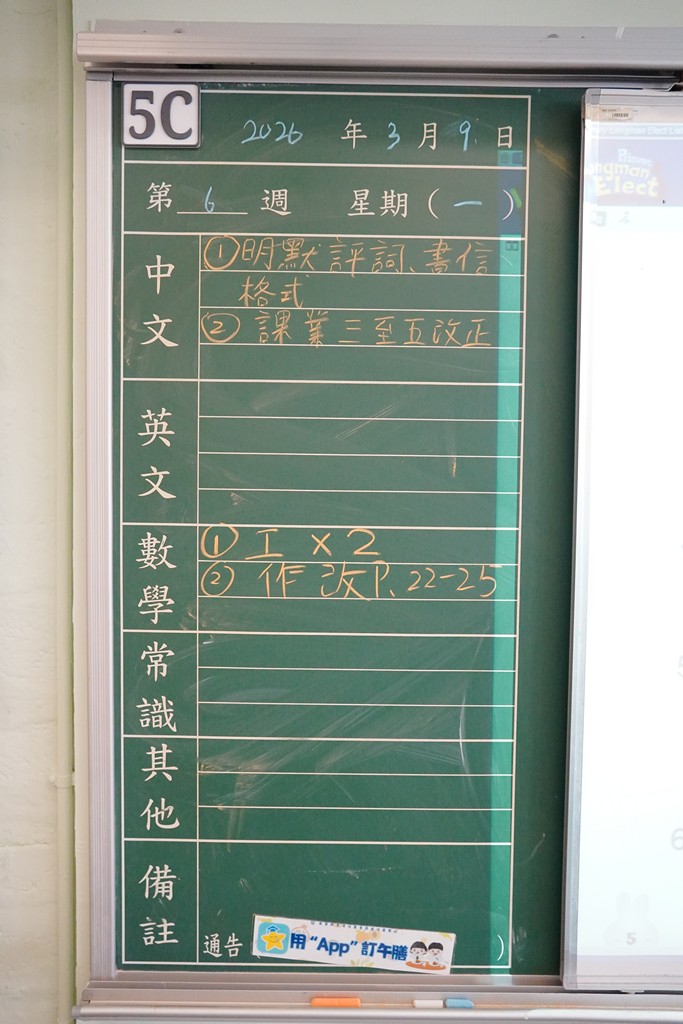 5C
2026 年 3 月 9 日
第 6 週 星期(一)
中文
①明默評詞、書信
格式
② 課業三至五改正
英文
數學
① 工 x 2
② 作 改P.22-25
常識
其他
備註
通告
用“App”訂午膳
)
Elect
5